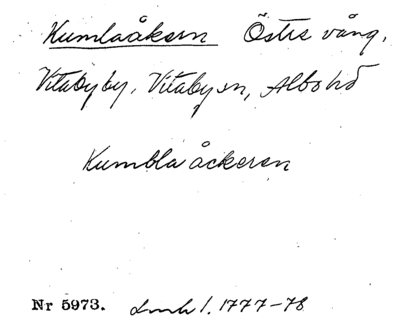 Kumlaåkern Östre vång,
Vitaby by, Vitaby sn, Albo hd
Kumbla åckeren
Nr 5973. Lmh 1. 1777-78